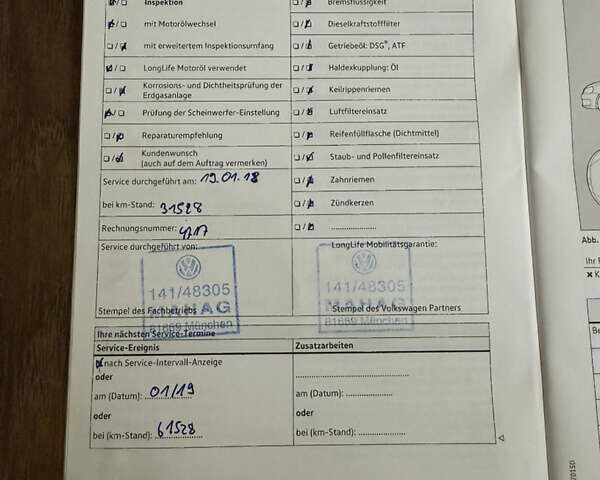 Inspektion
mit Motorölwechsel
mit erweitertem Inspektionsumfang
LongLife Motoröl verwendet
Korrosions- und Dichtheitsprüfung der
Erdgasanlage
Prüfung der Scheinwerfer-Einstellung
Reparaturempfehlung
Kundenwunsch
(auch auf dem Auftrag vermerken)
Service durchgeführt am: 19.01.18
bei km-Stand: 31528
Rechnungsnummer: 4717
Bremsflüssigkeit
Dieselkraftstofffilter
Getriebeöl: DSG®, ATF
Haldexkupplung: Öl
Keilrippenriemen
Luftfiltereinsatz
Reifenfüllflasche (Dichtmittel)
Staub- und Pollenfiltereinsatz
Zahnriemen
Zündkerzen
Service durchgeführt von:
141/48305
MAHAG
81669 München
Stempel des Fachbetriebs
LongLife Mobilitätsgarantie:
141/48305
MAHAG
81669 München
Stempel des Volkswagen Partners
Ihre nächsten Service-Termine
Service-Ereignis
nach Service-Intervall-Anzeige
oder
am (Datum): 01/19
oder
bei (km-Stand): 61528
Zusatzarbeiten
am (Datum):
oder
bei (km-Stand):
Abb.
Ihr